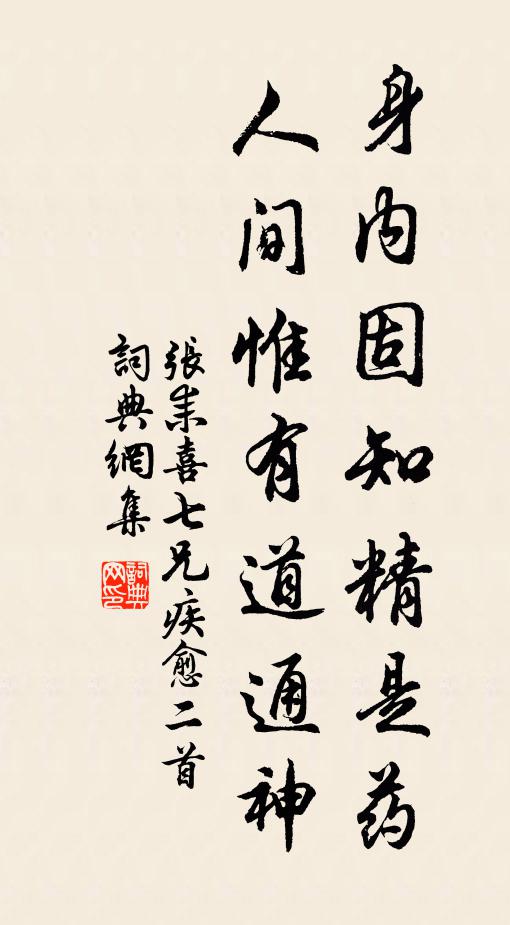 身内固知精是药
人间惟有道通神
張耒喜七兄疾愈二首
詞典網集
詞典网印